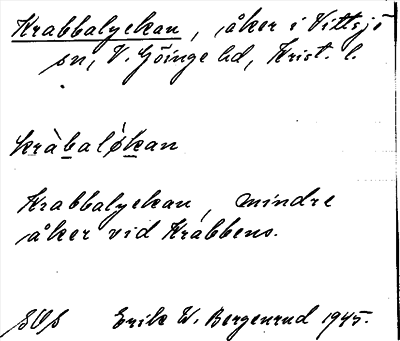 Krabbalyckan, åker i Vittsjö
sn, V. Göinge hd, Krist. l.
kràbaløkan
Krabbalyckan, mindre
åker vid Krabbens.
SOS Erik W. Bergenrud 1945.